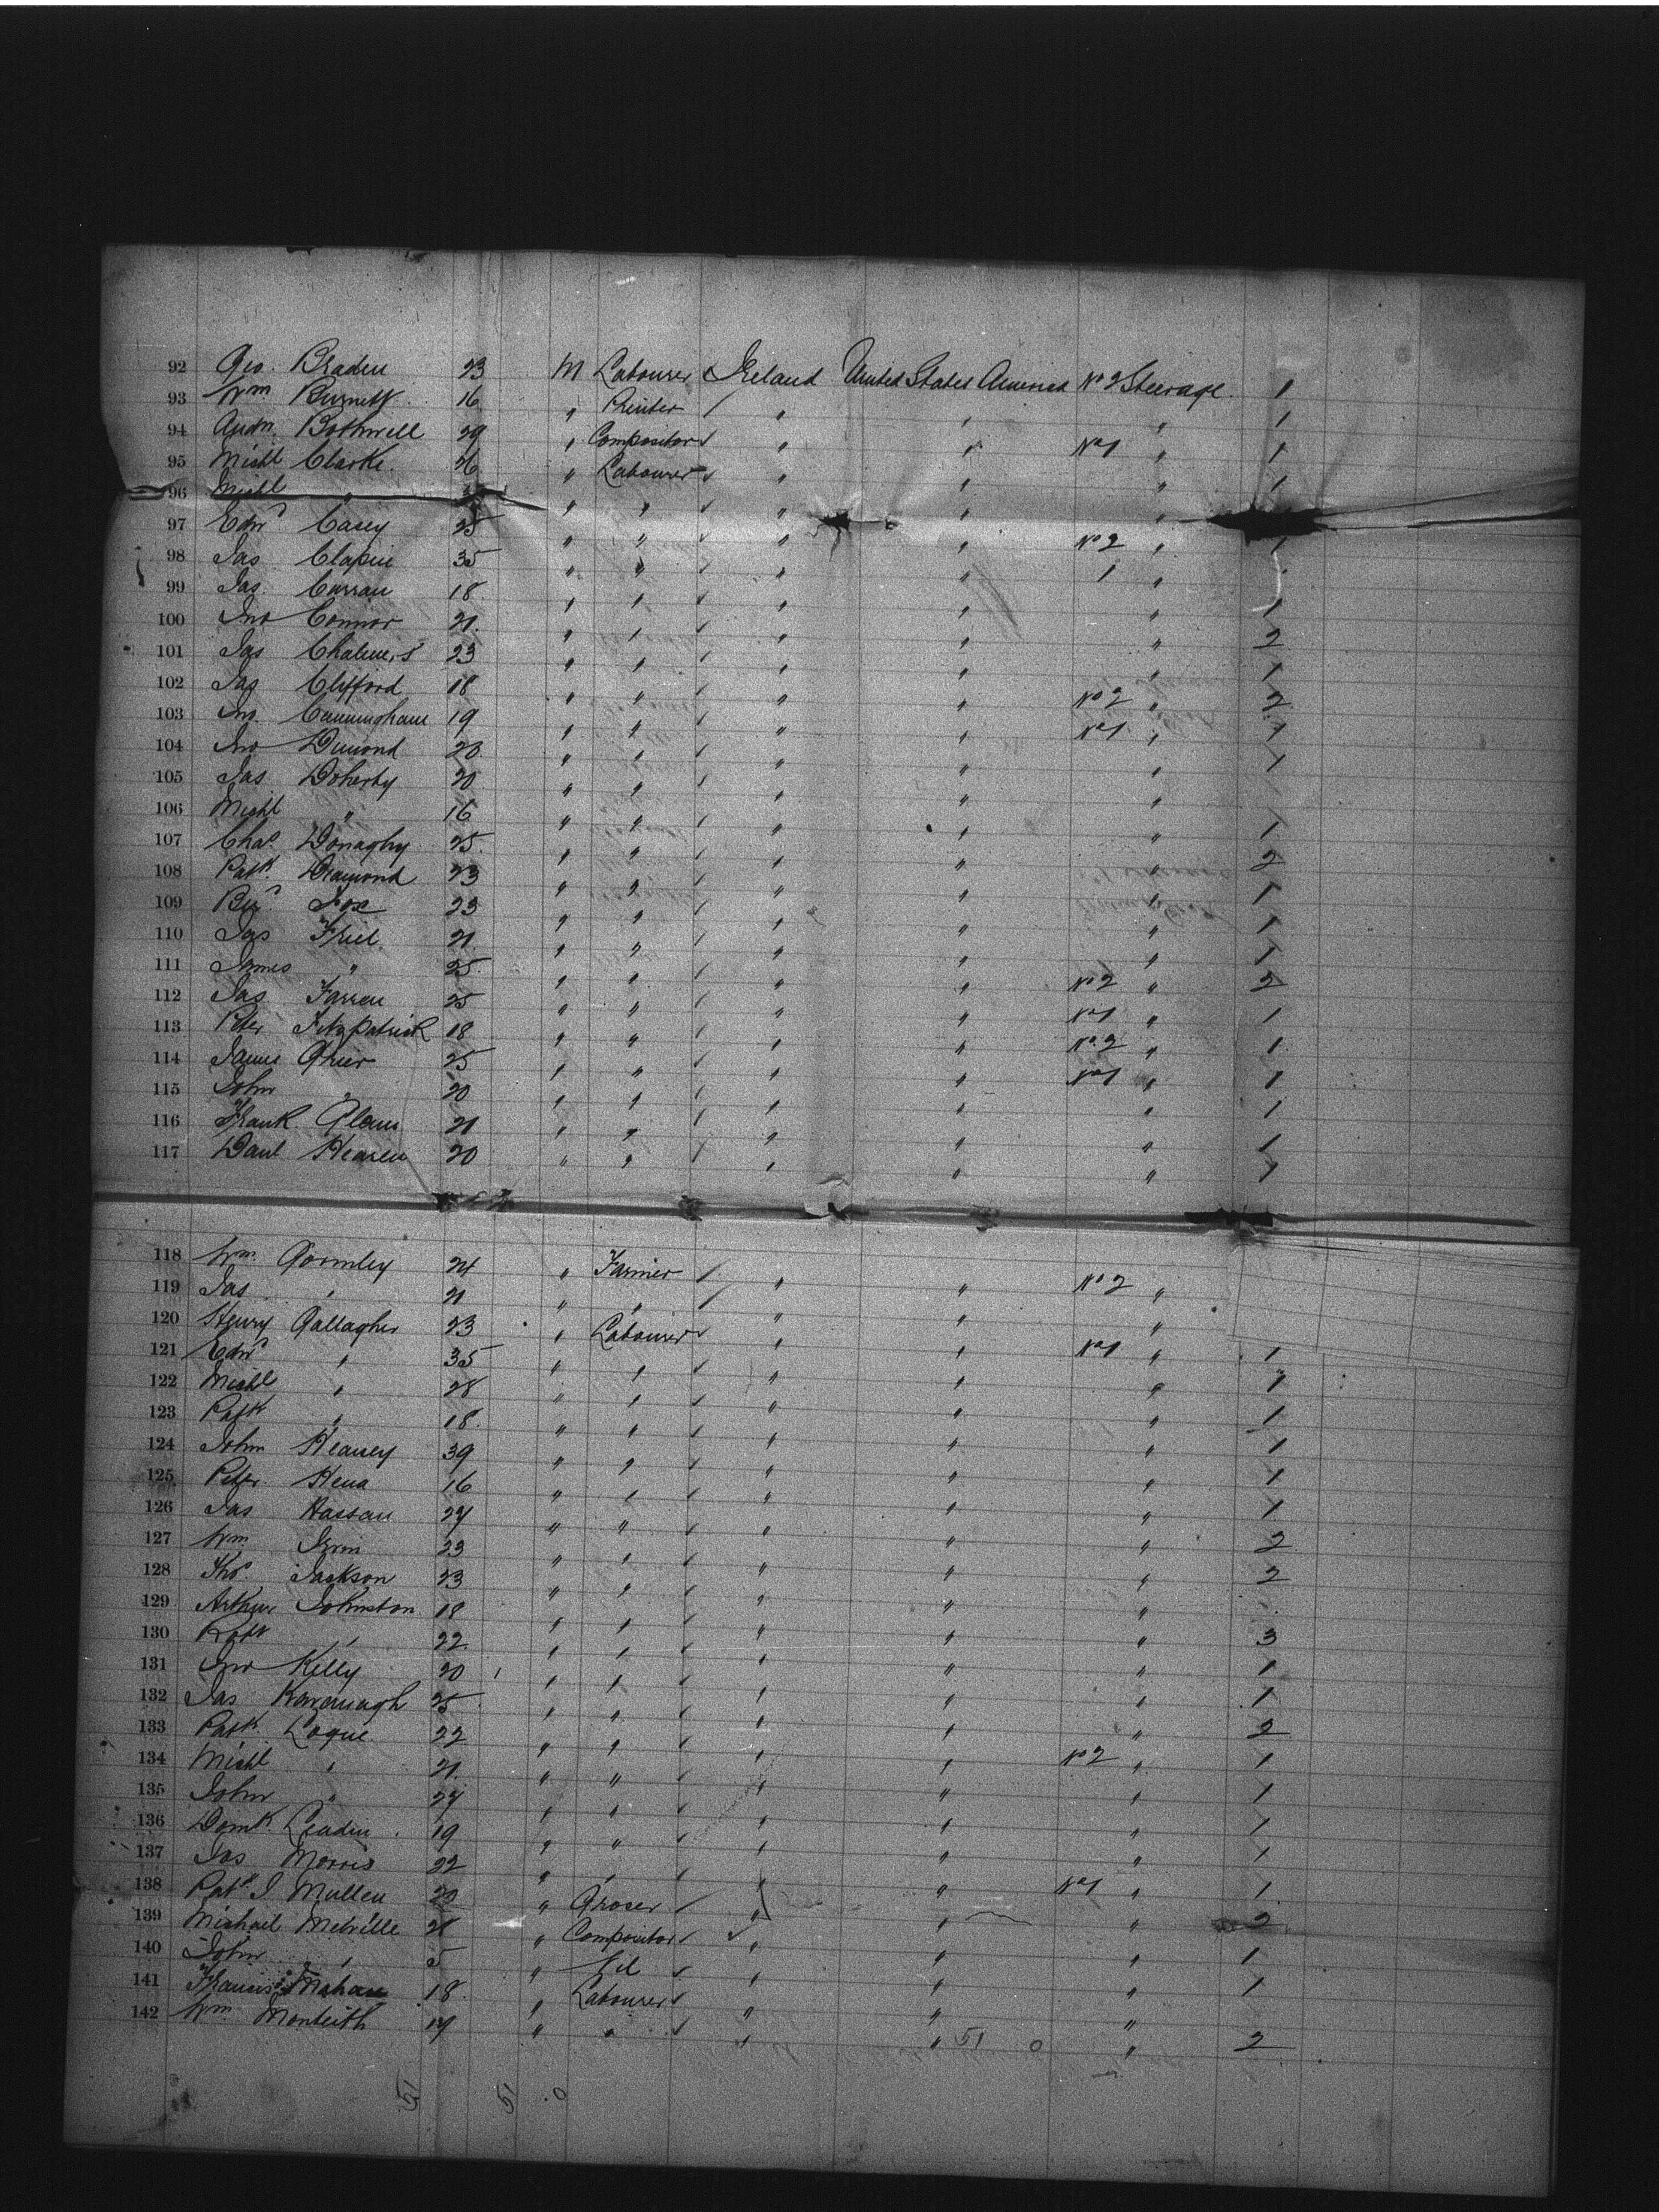 92 Geo. Braden 23 M Labourer Ireland United States America No 2 Steerage 1
93 Wm Burnett 16 " Printer " " " 1
94 Andw. Bothwell 29 " Compositor " " No 1 " 1
95 Michl Clarke 26 " Labourer " " " 1
96 Michl " " " " " "
97 Edwd Casey 25 " " " " No 2 " 1
98 Jas 35 " " " " 1 "
99 Jas. Curran 18 " " " " " 1
100 Jno Connor 21 " " " " " 2
101 Jas Chalmers 23 " " " " " 1
102 Jas Clifford 18 " " " " No 2 " 2
103 Jno. Cunningham 19 " " " " No 1 " 1
104 Jno Dimond 20 " " " " " 1
105 Jas Doherty 20 " " " " "
106 Michl " 16 " " " " " 1
107 Chas Donaghy 25 " " " " " 2
108 Patk. Diamond 23 " " " " " 1
109 Fox 23 " " " " " 1
110 Jas Friel 21 " " " " " 1
111 James " 25 " " " " No 2 " 2
112 Jas Farren 25 " " " " No 1 " 1
113 Peter Fitzpatrick 18 " " " " No 2 " 1
114 James Grier 25 " " " " No 1 " 1
115 John " 20 " " " " " 1
116 Frank 21 " " " " " 1
117 Danl 20 " " " " " 1
118 Wm. Gormley 24 " Farmer " " No 2 "
119 Jas " 21 " " " " "
120 Henry Gallagher 23 " Labourer " " No 1 " 1
121 Edwd " 35 " " " " " 1
122 Michl " 28 " " " " " 1
123 Patk " 18 " " " " " 1
124 John Heaney 39 " " " " " 1
125 Peter 16 " " " " " 1
126 Jas Hassan 27 " " " " " 2
127 Wm 23 " " " " " 2
128 Thos Jackson 23 " " " " "
129 Arthur Johnston 18 " " " " " 3
130 Robt " 22 " " " " " 1
131 Jno Kelly 20 " " " " " 1
132 Jas Kavanagh 25 " " " " " 2
133 Patk. Logue 22 " " " " No 2 " 1
134 Michl " 21 " " " " " 1
135 John " 27 " " " " " 1
136 Domk. 19 " " " " " 1
137 Jas Morris 22 " " " " No 1 " 1
138 Patk J Mullen 20 " Groser " " " 2
139 Michael Melville 28 " Compositor " " " 1
140 John " 5 " " " " 1
141 Francis Mahan 18 " Labourer " " "
142 Wm Monteith 17 " " " " 51 0 " 2
51 51 0